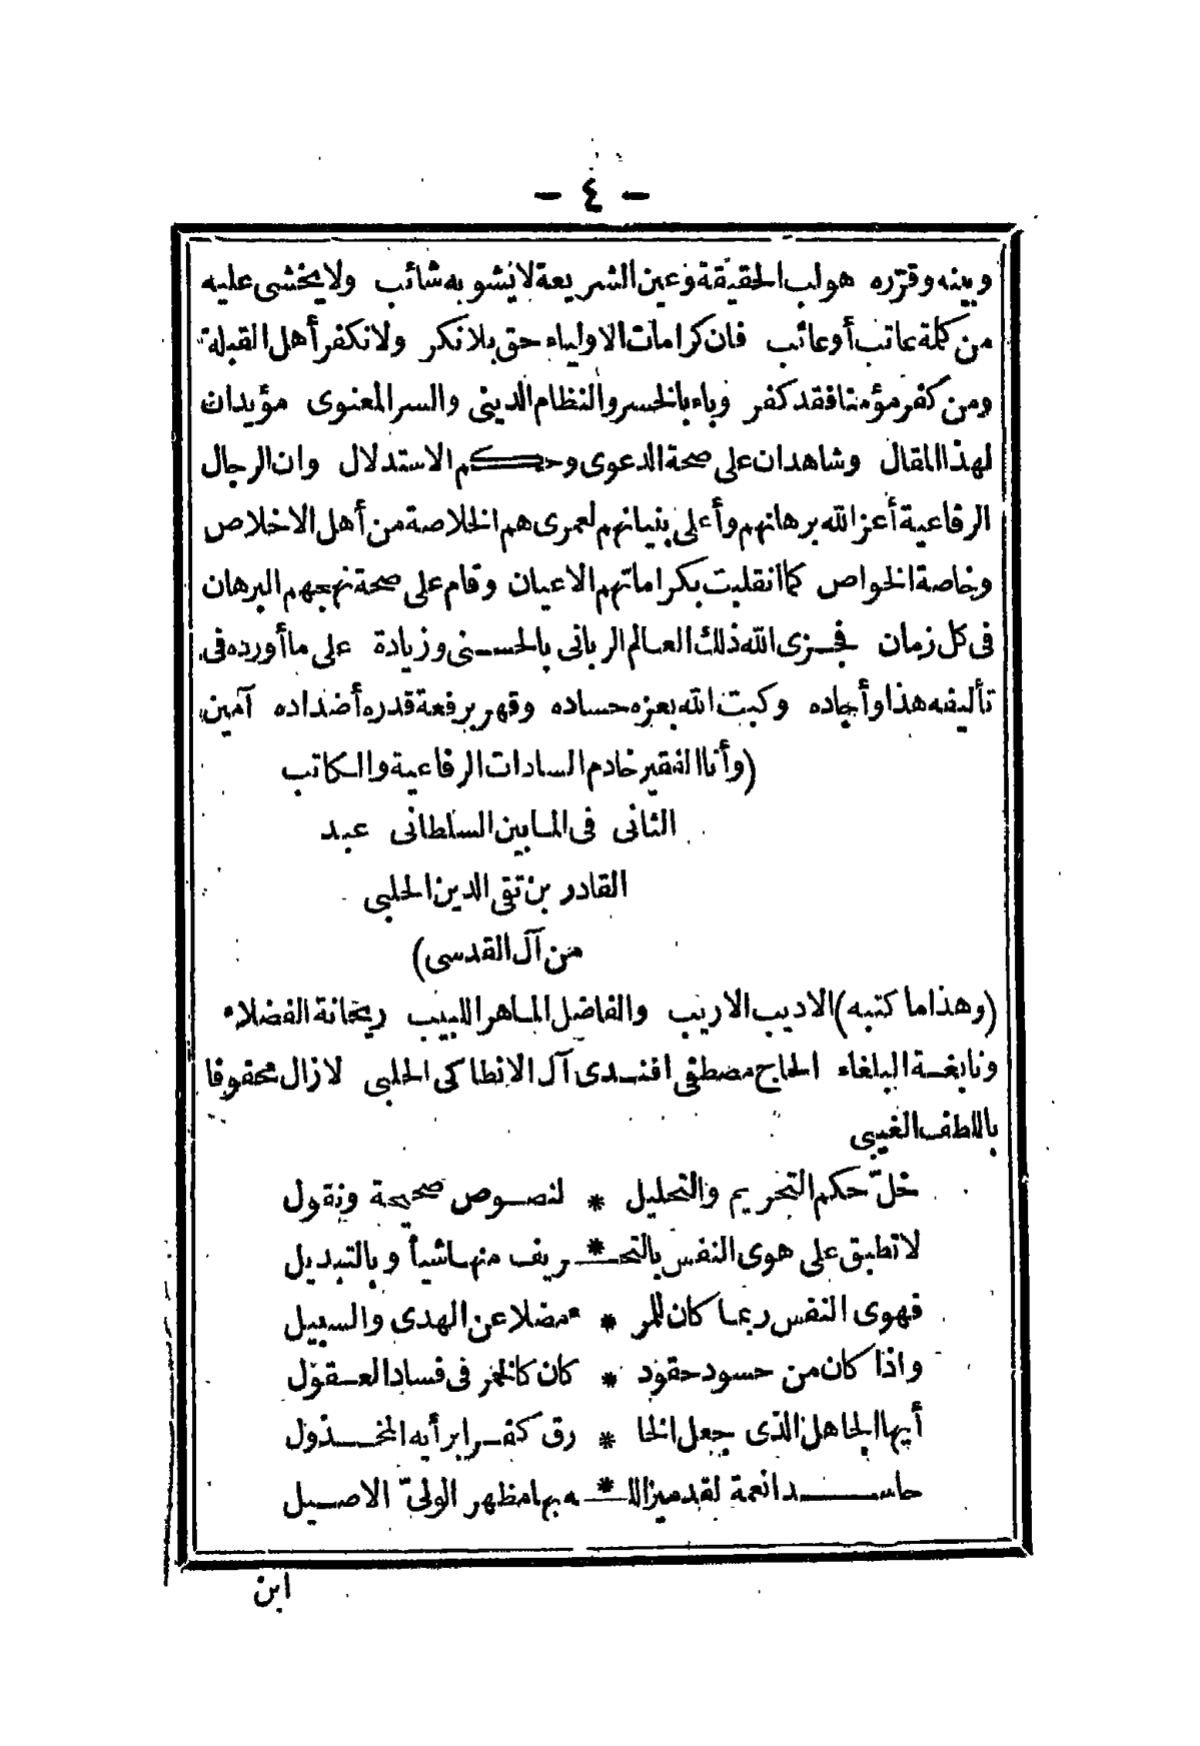 – ٤ –
وبينه وقرّره هو لب الحقيقة وعين الشريعة لا يشوبه شائب ولا يخشى عليه
من كلة عاتب أو عائب فان كرامات الاولياء حق بلا نكر ولا نكفر أهل القبلة
ومن كفر مؤمنا فقد كفر وباء بالخسر والنظام الديني والسر المعنوى مؤيدان
لهذا المقال وشاهدان على صحة الدعوى وحكم الاستدلال وان الرجال
الرفاعية أعز الله برهانهم وأعلى بنيانهم لعمرى هم الخلاصة من أهل الاخلاص
وخاصة الخواص كما انقلبت بكراماتهم الاعيان وقام على صحة نهجهم البرهان
فى كل زمان فجزى الله ذلك العالم الربانى بالحسنى وزيادة على ما أورده فى
تأليفه هذا وأجاده وكبت الله بعزه حساده وقهر برفعة قدره أضداده آمين
(وأنا الفقير خادم السادات الرفاعية والكاتب
الثانى فى المابين السلطانى عبد
القادر بن تقى الدين الحلبى
من آل القدسى)
(وهذا ما كتبه) الاديب الاريب والفاضل الماهر اللبيب ريحانة الفضلاء
ونابغة البلغاء الحاج مصطفى افندى آل الانطاكى الحلبى لازال محفوفا
باللطف الغيبى
خلّ حكم التحريم والتحليل * لنصوص صحيحة ونقول
لا تطبق على هوى النفس بالتحـ * ـريف منها شيأ وبالتبديل
فهوى النفس ربما كان للمر * ء مضلا عن الهدى والسبيل
واذا كان من حسود حقود * كان كالخمر فى فساد العقول
أيها الجاهل الذى جعل الخا * رق كفرا برأيه المخذول
حاسدا نعمة لقد ميز اللـ * ـه بها مظهر الولىّ الاصيل
ابن